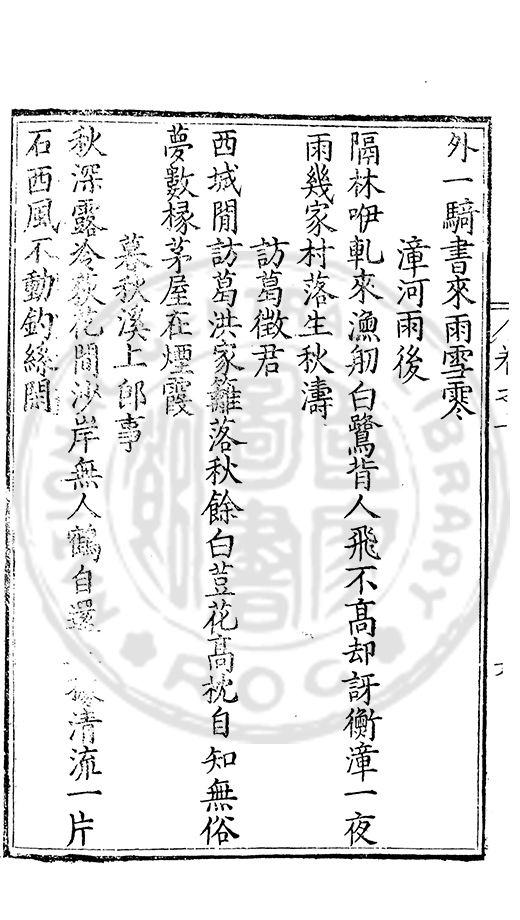 外一騎書來雨雪零
漳河雨後
隔林咿軋來漁舠白鷺背人飛不高却訝衡漳一夜
雨幾家村落生秋濤
訪葛徵君
西城閒訪葛洪家籬落秋餘白荳花高枕自知無俗
夢數椽茅屋在煙霞
暮秋溪上即事
秋深露冷荻花間沙岸無人鶴自還清流一片
石西風不動釣絲閒